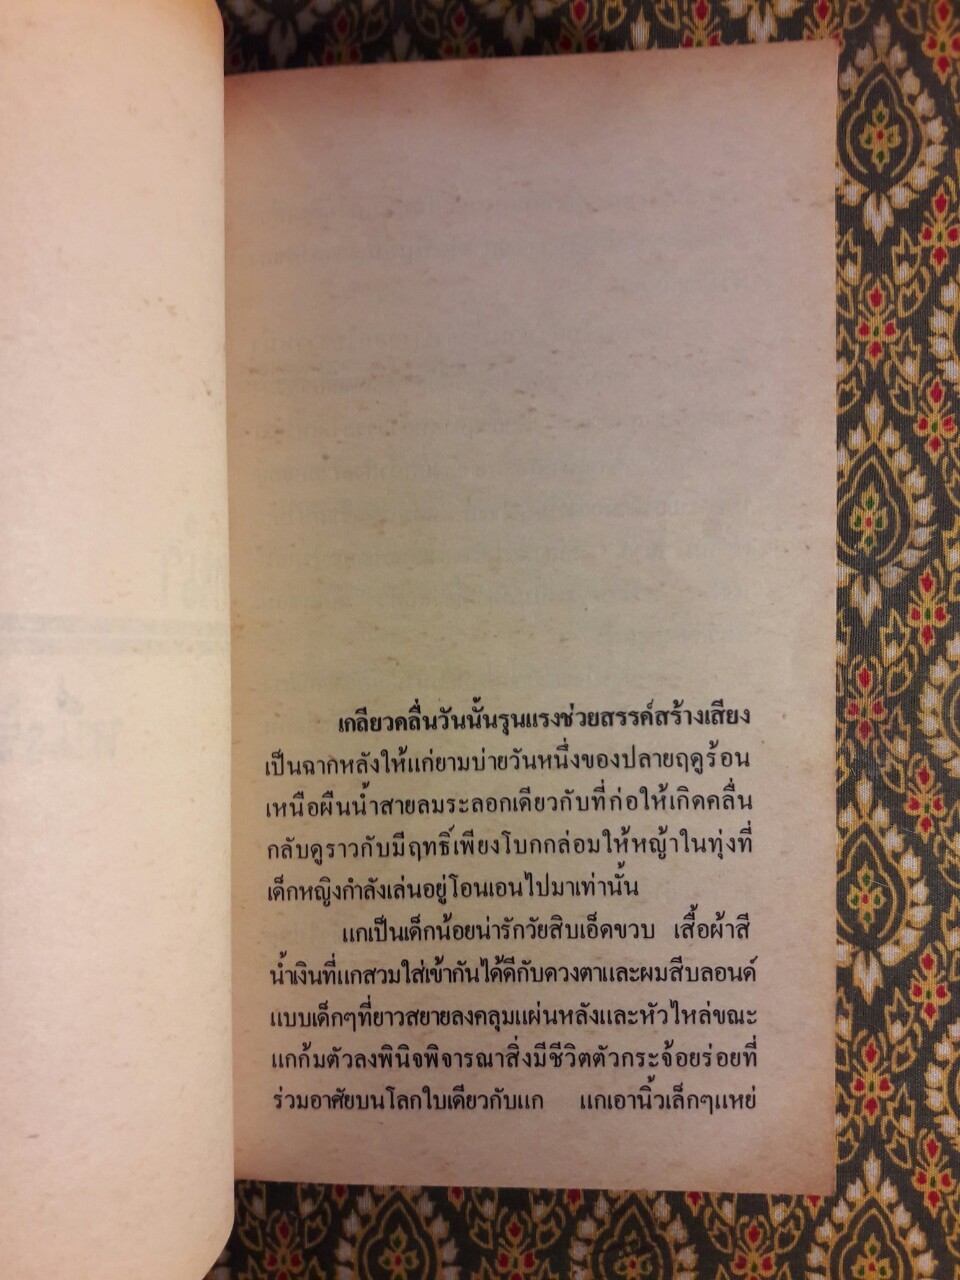 เกลียวคลื่นวันนั้นรุนแรงช่วยสรรค์สร้างเสียง
เป็นฉากหลังให้แก่ยามบ่ายวันหนึ่งของปลายฤดูร้อน
เหนือผืนน้ำสายลมระลอกเดียวกับที่ก่อให้เกิดคลื่น
กลับดูราวกับมีฤทธิ์เพียงโบกกล่อมให้หญ้าในทุ่งที่
เด็กหญิงกำลังเล่นอยู่โอนเอนไปมาเท่านั้น
แกเป็นเด็กน้อยน่ารักวัยสิบเอ็ดขวบ เสื้อผ้าสี
น้ำเงินที่แกสวมใส่เข้ากันได้ดีกับดวงตาและผมสีบลอนด์
แบบเด็กๆที่ยาวสยายลงคลุมแผ่นหลังและหัวไหล่ขณะ
แกก้มตัวลงพินิจพิจารณาสิ่งมีชีวิตตัวกระจ้อยร่อยที่
ร่วมอาศัยบนโลกใบเดียวกับแก แกเอานิ้วเล็กๆแหย่